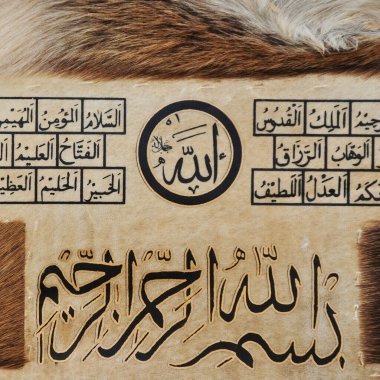 الملك القدوس السلام المؤمن
الله جل جلاله
الوهاب الرزاق الفتاح العليم
العدل اللطيف الخبير الحليم
بسم الله الرحمن الرحيم